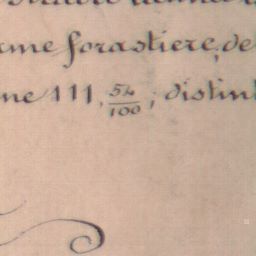 arme forastiere, de
ne 111, 54/100; distint